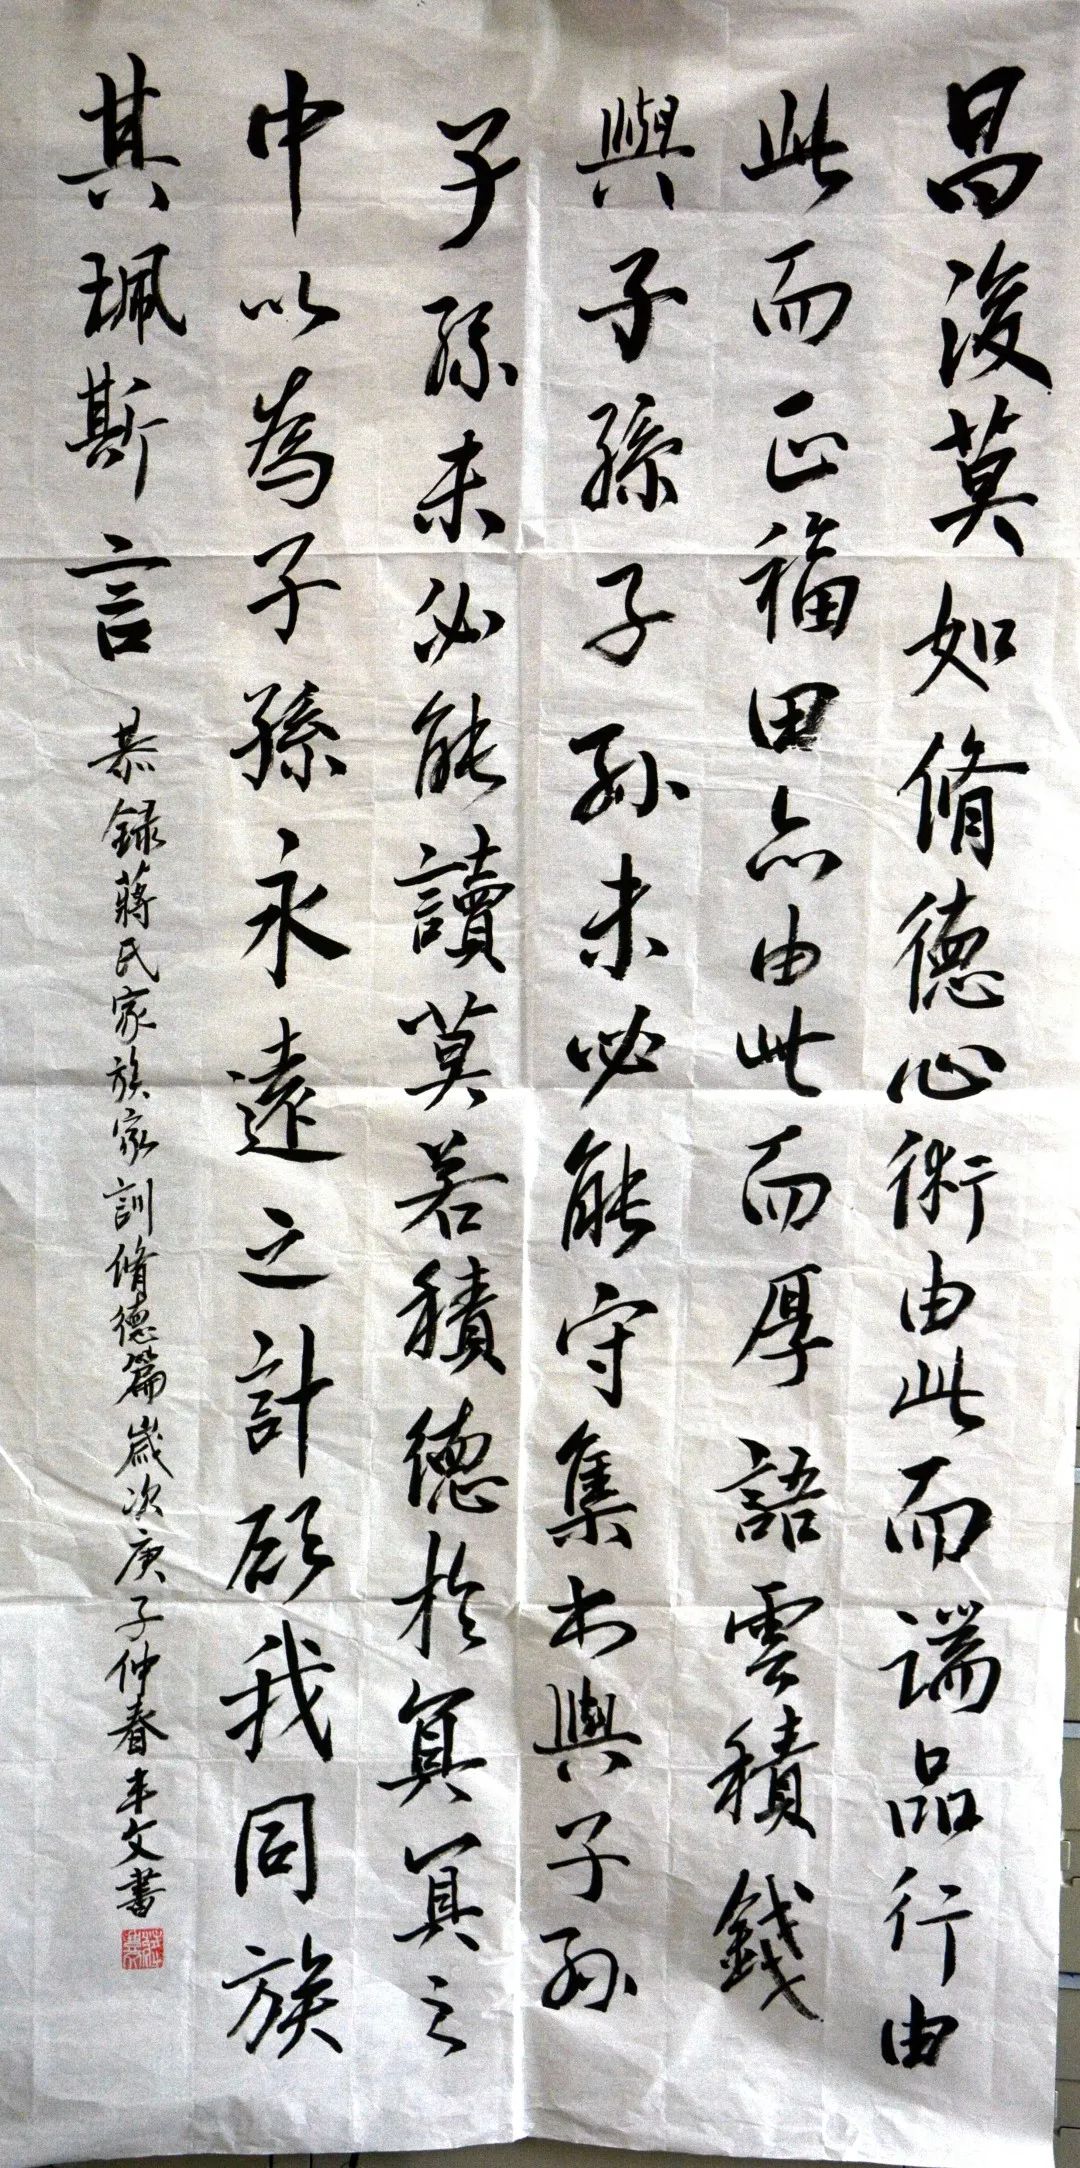 昌後莫如脩德心術由此而端品行由
此而正福田亦由此而厚語雲積錢
與子孫子孫未必能守集書與子孫
子孫未必能讀莫若積德於冥冥之
中以為子孫永遠之計願我同族
其珮斯言
恭錄蔣氏家族家訓脩德篇歲次庚子仲春丰文書